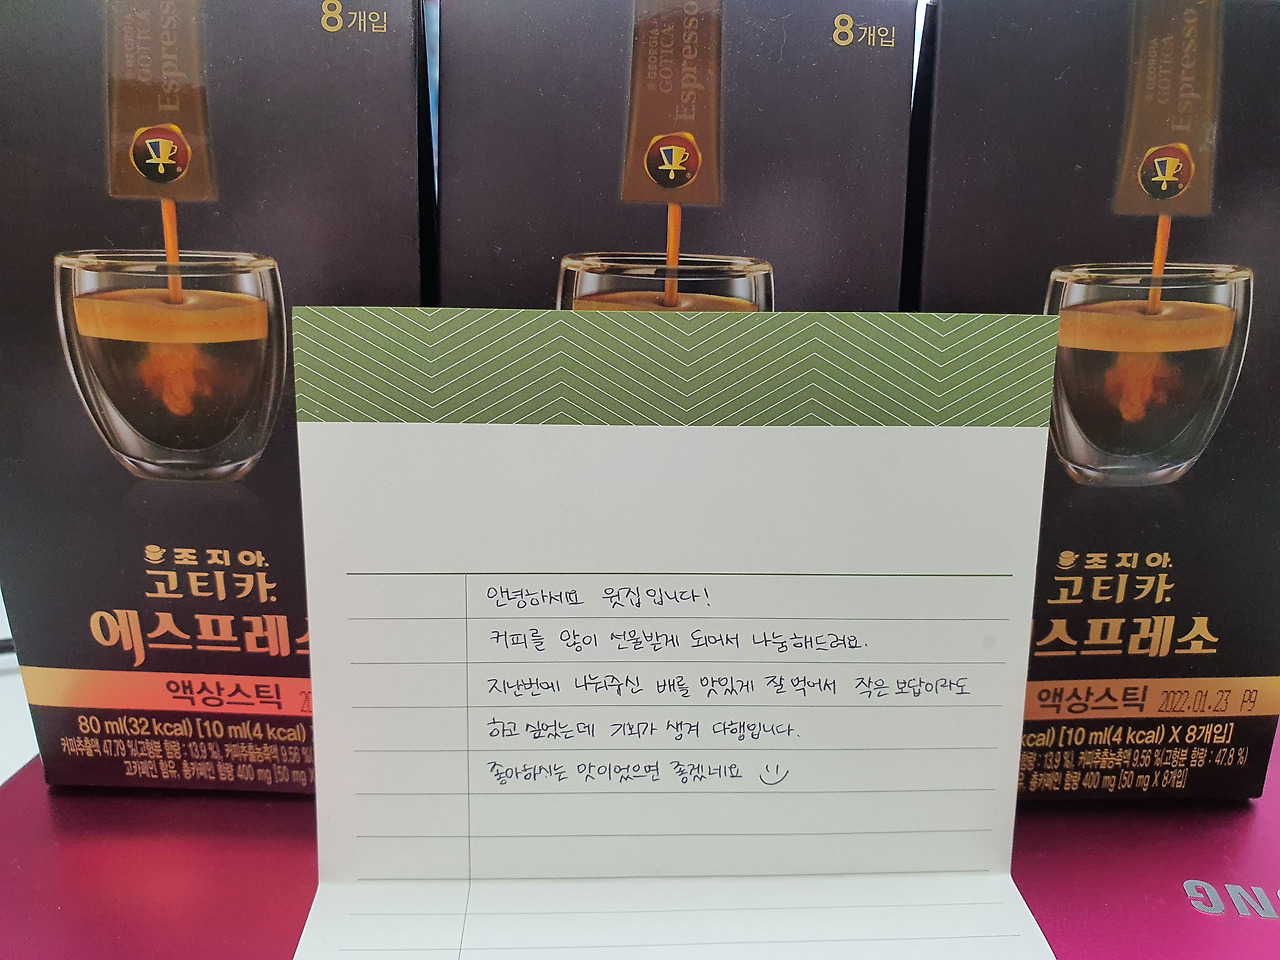 8개입
8개입
GEORGIA
GOTICA
Espresso
GEORGIA
GOTICA
Espresso
GEORGIA
GOTICA
Espresso
조지아
고티카
에스프레소
액상스틱
80 ml(32 kcal) [10 ml(4 kcal)
커피추출액 47.79 %(고형분 함량 : 13.9 %), 커피추출농축액 9.56 %
고카페인 함유, 총카페인 함량 400 mg [50 mg X
조지아
고티카
스프레소
액상스틱 2022.01.23 P9
kcal) [10 ml(4 kcal) X 8개입]
: 13.9 %), 커피추출농축액 9.56 %(고형분 함량 : 47.8 %)
유, 총카페인 함량 400 mg [50 mg X 8개입]
안녕하세요 윗집입니다!
커피를 많이 선물받게 되어서 나눔해드려요.
지난번에 나눠주신 배를 맛있게 잘 먹어서 작은 보답이라도
하고 싶었는데 기회가 생겨 다행입니다.
좋아하시는 맛이었으면 좋겠네요
NG